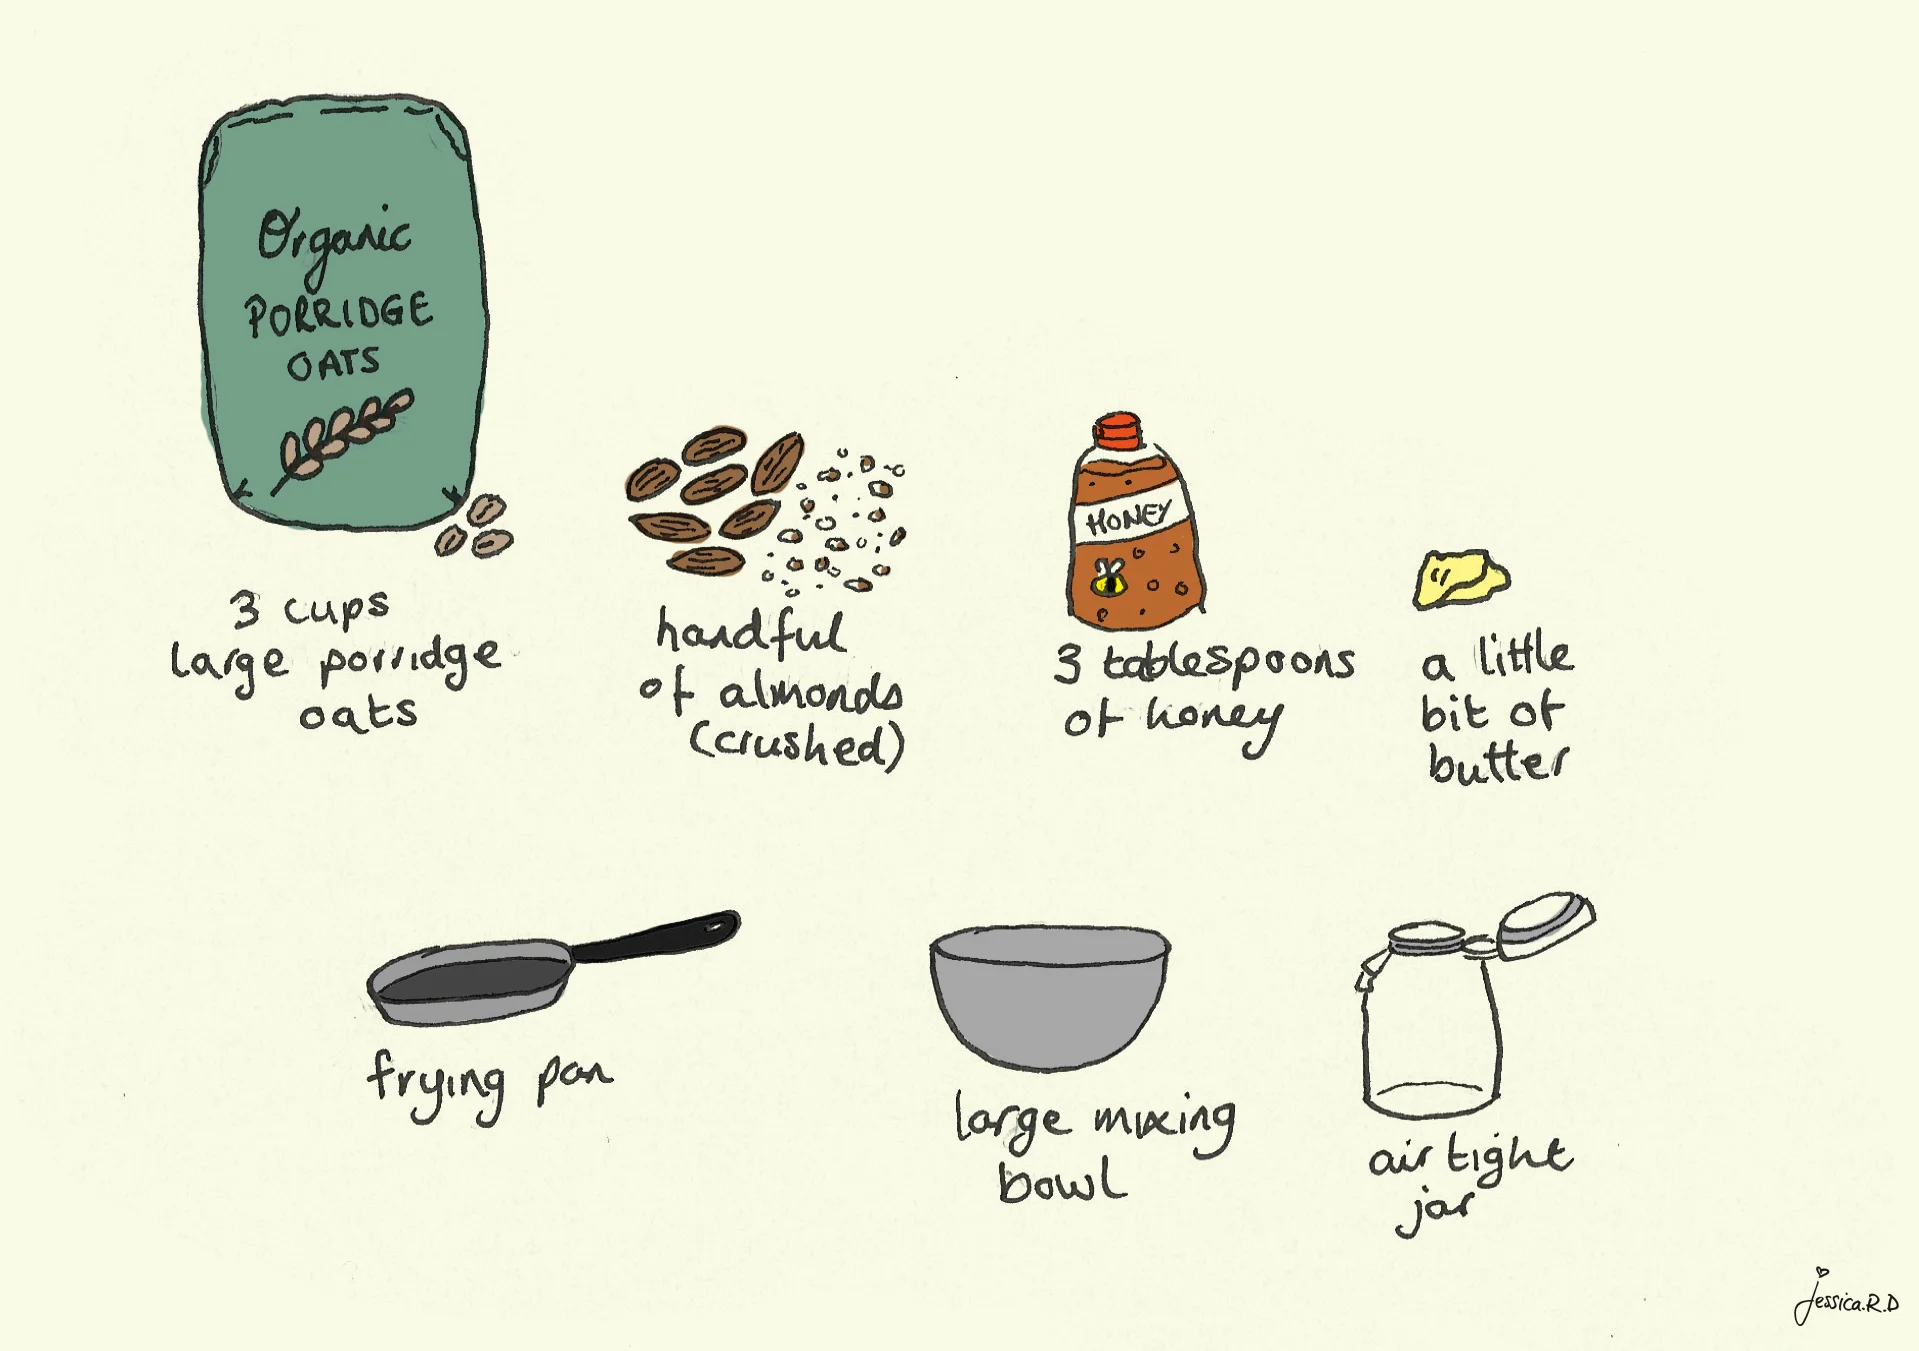 Organic
PORRIDGE
OATS
HONEY
3 cups
large porridge
oats
handful
of almonds
(crushed)
3 tablespoons
of honey
a little
bit of
butter
frying pan
large mixing
bowl
air tight
jar
Jessica.R.D